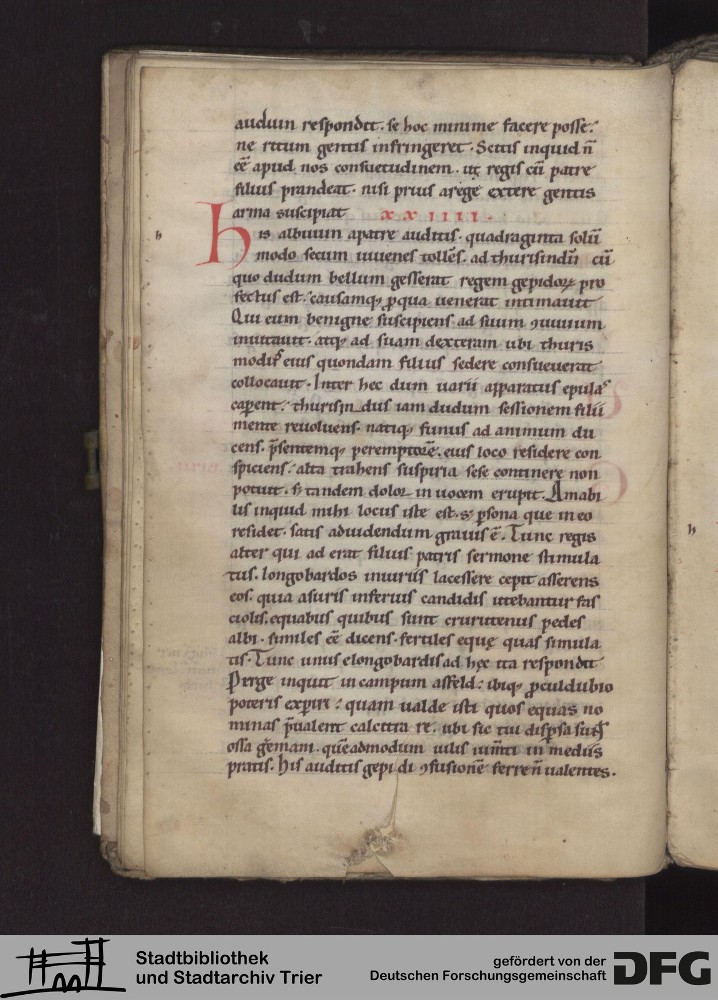 auduin respondit. se hoc minime facere posse.
ne ritum gentis infringeret. Scitis inquid n̄
eē apud nos consuetudinem. ut regis cū patre
filius prandeat. nisi prius a rege extere gentis
arma suscipiat xxiiii.
h
his albuuin a patre auditis. quadraginta solū
modo secum iuuenes tollēs. ad thurisindū cū
quo dudum bellum gesserat regem gepidoꝝ pro
fectus est. causamqꝫ ꝓ qua uenerat intimauit
Qui eum benigne suscipiens ad suum ꝯuiuium
inuitauit. atqꝫ ad suam dexteram ubi thuris
modꝰ eius quondam filius sedere consueuerat
collocauit. Inter hec dum uarii apparatus epulaꝝ
caperent. thurisindus iam dudum sessionem filii
mente reuoluens. natiqꝫ funus ad animum du
cens. p̄sentemqꝫ peremptorē. eius loco residere con
spiciens. alta trahens suspiria sese continere non
potuit. sꝫ tandem dolor in uocem erupit. Amabi
lis inquid mihi locus iste est. sꝫ ꝑsona que in eo
residet. satis ad uidendum grauis ē. Tunc regis
alter qui ad erat filius patris sermone stimula
tus. longobardos iniuriis lacessere cepit asserens
eos. quia a suris inferius candidis utebantur fas
ciolis. equabus quibus sunt crurutenus pedes
albi. similes eē dicens. fertiles equę quas simula
tis. Tunc unus e longobardis ad hęc ita respondit
Perge inquit in campum asfeld. ibiqꝫ ꝓculdubio
poteris exꝑiri. quam ualde isti quos equas no
minas p̄ualent calcitra re. ubi sic tui disꝑsa sunt
ossa germani. quēadmodum uilis iumti in mediis
pratis. his auditis gepi di ꝯfusionē ferre n̄ ualentes.
h
Stadtbibliothek
und Stadtarchiv Trier
gefördert von der
Deutschen Forschungsgemeinschaft
DFG